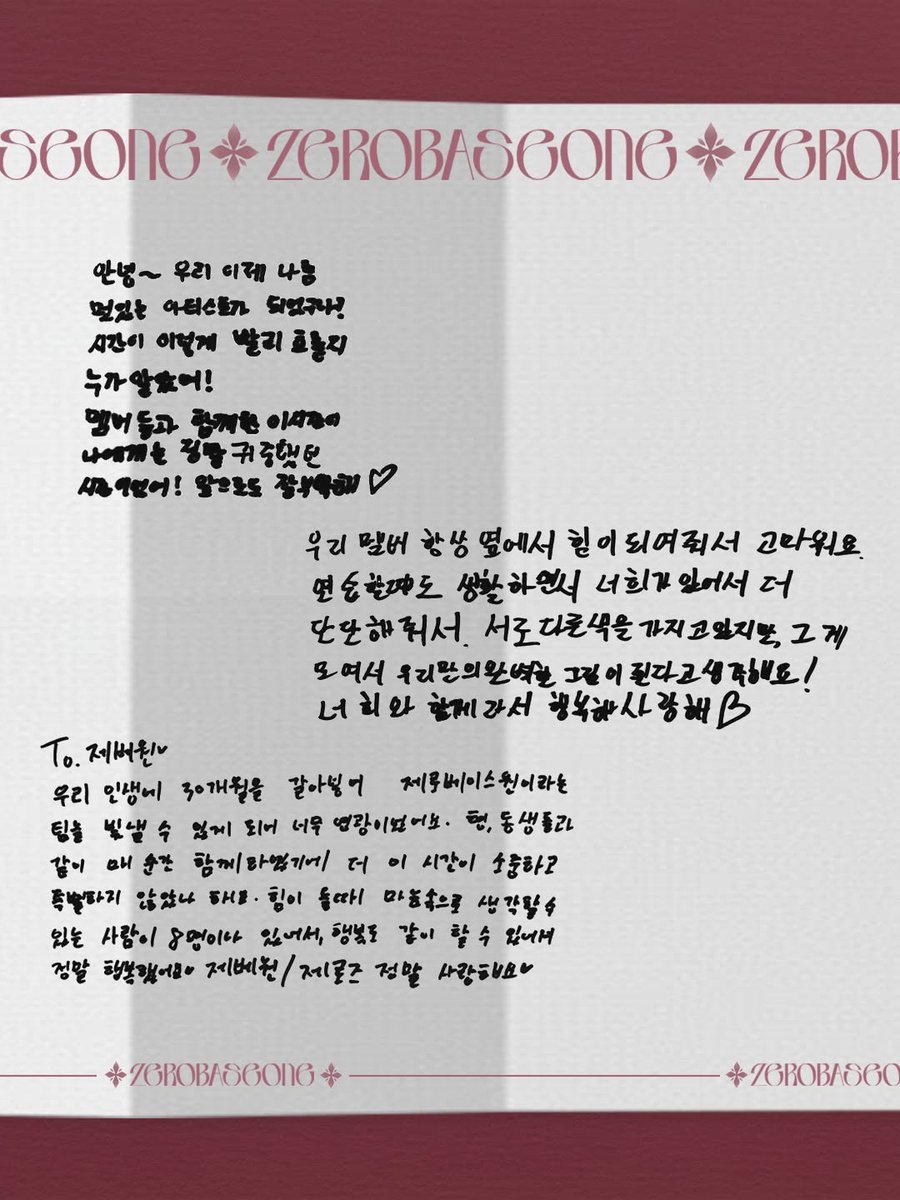 SEONE ZEROBASEONE ZEROB
안녕~ 우리 이제 나름
멋있는 아티스트가 되었구나!
시간이 이렇게 빨리 흐를지
누가 알았어!
멤버들과 함께한 이시간이
나에게는 정말 귀중했던
시간이었어! 앞으로도 잘부탁해♡
우리 멤버 항상 옆에서 힘이되여줘서 고마워요.
연습할때도 생활하면서 너희가 있어서 더
단단해줘서. 서로다른색을 가지고있지만, 그게
모여서 우리만의완벽한 그림이 된다고생각해요!
너희와 함께라서 행복해 사랑해♡
To. 제버원♥
우리 인생에 30개월을 갈아넣어 제로베이스원이라는
팀을 빛낼 수 있게 되어 너무 영광이었어요. 형, 동생들과
같이 매 순간 함께라 이 시간이 소중하고
특별하지 않았나 해요. 힘이 들때 마음속으로 생각할수
있는 사람이 8명이나 있어서, 행복도 같이 할 수 있어서
정말 행복했어요♥ 제베원/제로즈 정말 사랑해요♥
ZEROBASEONE ZEROBASEO